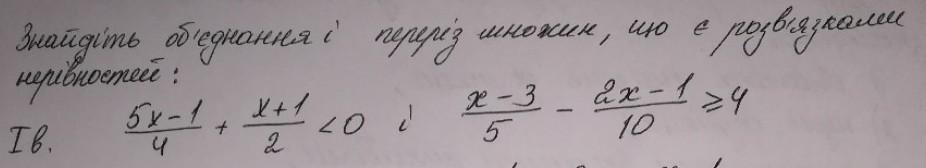 Знайдіть об'єднання і переріз множин, що є розв'язками
нерівностей:
І в. (5x-1)/4 + (x+1)/2 < 0 і (x-3)/5 - (2x-1)/10 ≥ 4